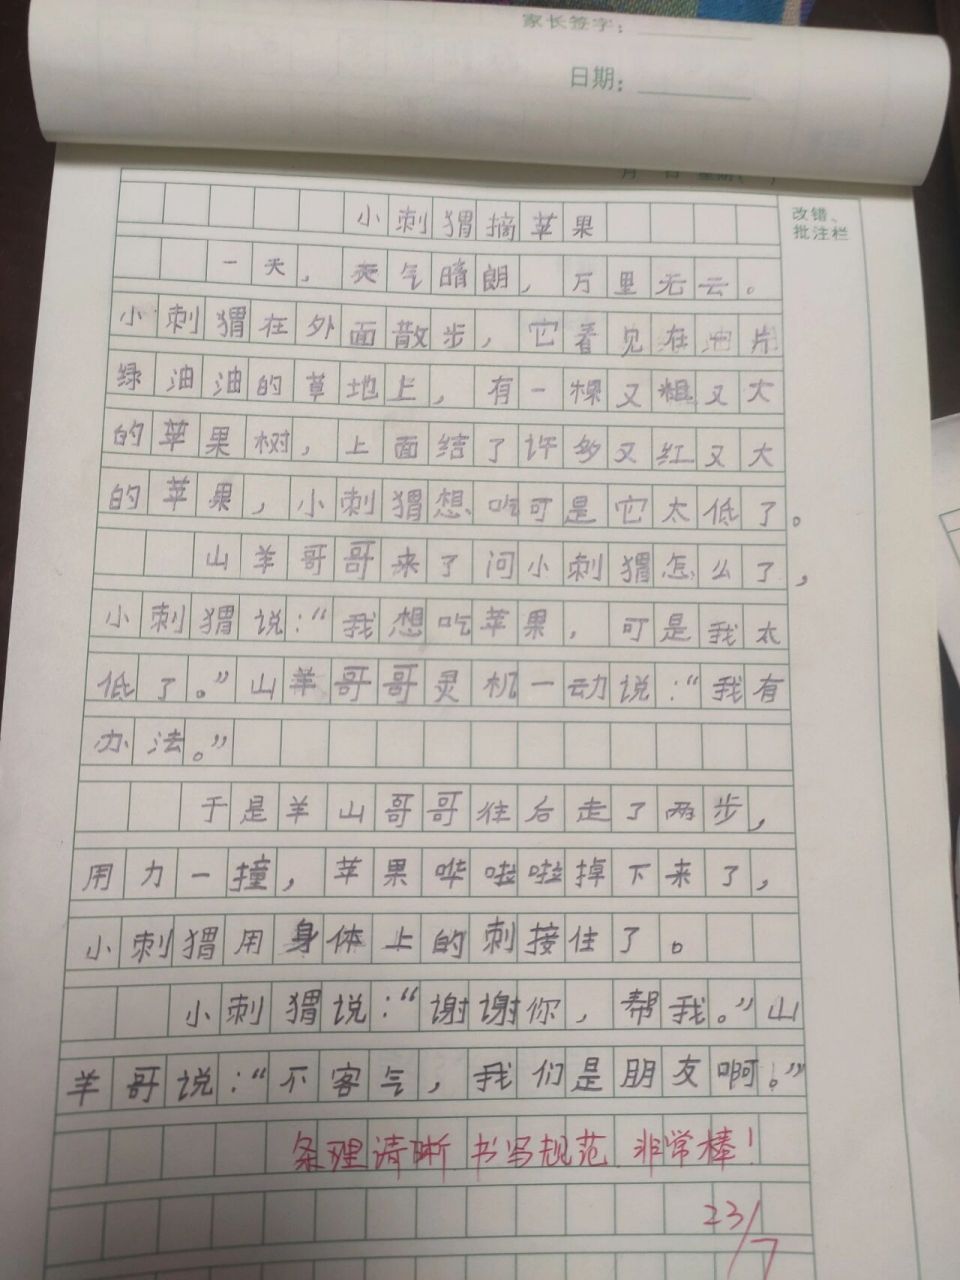 家长签字：
日期：
月 日 星期( )
改错、
批注栏
小刺猬摘苹果
一天，天气晴朗，万里无云。
小刺猬在外面散步，它看见在一片
绿油油的草地上，有一棵又粗又大
的苹果树，上面结了许多又红又大
的苹果，小刺猬想吃可是它太低了。
山羊哥哥来了问小刺猬怎么了，
小刺猬说：“我想吃苹果，可是我太
低了。”山羊哥哥灵机一动说：“我有
办法。”
于是羊山哥哥往后走了两步，
用力一撞，苹果哗啦啦掉下来了，
小刺猬用身体上的刺接住了。
小刺猬说：“谢谢你，帮我。”山
羊哥说：“不客气，我们是朋友啊。”
条理清晰 书写规范 非常棒！
23/7